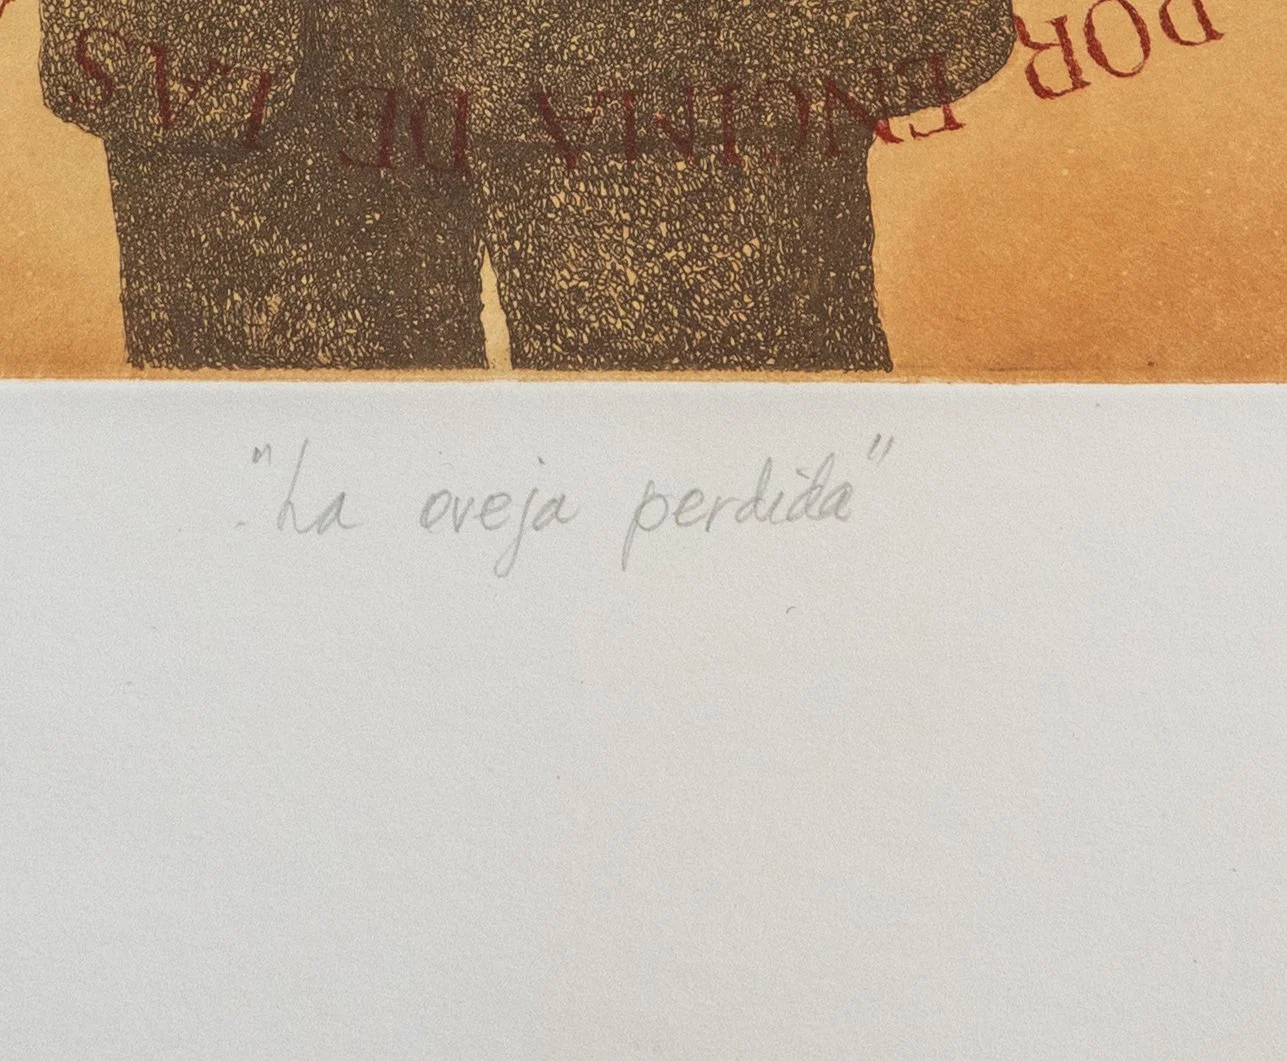 POR ENCIMA DE LAS
"La oveja perdida"